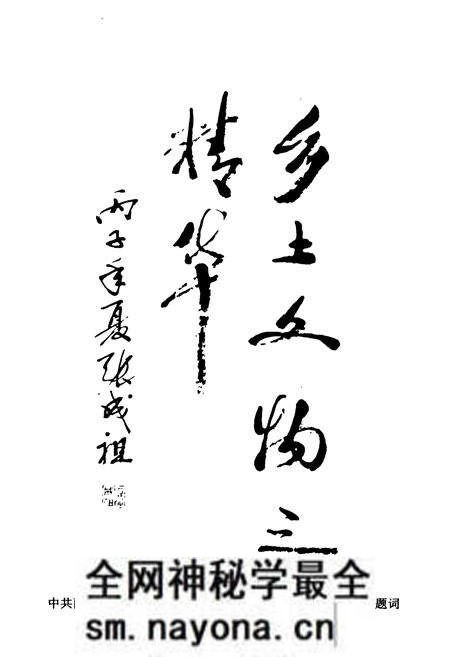 乡土文物之
精华
丙子年夏张成祖
中共 题词
全网神秘学最全
sm.nayona.cn